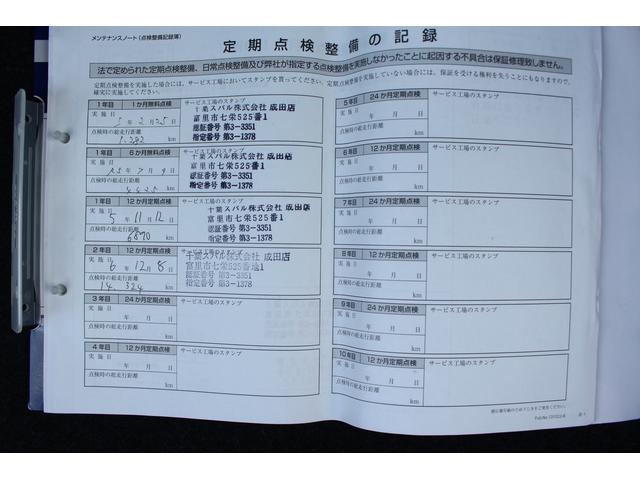 メンテナンスノート（点検整備記録簿）
定期点検整備の記録
法で定められた定期点検整備、日常点検整備及び弊社が指定する点検整備を実施しなかったことに起因する不具合は保証修理致しません。
定期点検整備を実施した場合には、サービス工場においてスタンプを買ってください。定期点検整備を実施していない場合には、保証を受ける権利を失うことにもなりますので、
確実に実施してください。
1年目 1か月無料点検 サービス工場のスタンプ
実施日
2月25日
点検時の総走行距離
km
千葉スバル株式会社 成田店
富里市七栄525番1
認証番号 第3-3351
指定番号 第3-1378
1年目 6か月無料点検 サービス工場のスタンプ
実施日
R5年7月9日
点検時の総走行距離
km
千葉スバル株式会社 成田店
富里市七栄525番1
認証番号 第3-3351
指定番号 第3-1378
1年目 12か月定期点検 サービス工場のスタンプ
実施日
5年11月12日
点検時の総走行距離
6890 km
千葉スバル株式会社 成田店
富里市七栄525番1
認証番号 第3-3351
指定番号 第3-1378
2年目 12か月定期点検 サービス工場のスタンプ
実施日
6年12月8日
点検時の総走行距離
14,324 km
千葉スバル株式会社 成田店
富里市七栄525番地1
認証番号 第3-3351
指定番号 第3-1378
3年目 24か月定期点検 サービス工場のスタンプ
実施日
年 月 日
点検時の総走行距離
km
4年目 12か月定期点検 サービス工場のスタンプ
実施日
年 月 日
点検時の総走行距離
km
5年目 24か月定期点検 サービス工場のスタンプ
実施日
年 月 日
点検時の総走行距離
km
6年目 12か月定期点検 サービス工場のスタンプ
実施日
年 月 日
点検時の総走行距離
km
7年目 24か月定期点検 サービス工場のスタンプ
実施日
年 月 日
点検時の総走行距離
km
8年目 12か月定期点検 サービス工場のスタンプ
実施日
年 月 日
点検時の総走行距離
km
9年目 24か月定期点検 サービス工場のスタンプ
実施日
年 月 日
点検時の総走行距離
km
10年目 12か月定期点検 サービス工場のスタンプ
実施日
年 月 日
点検時の総走行距離
km